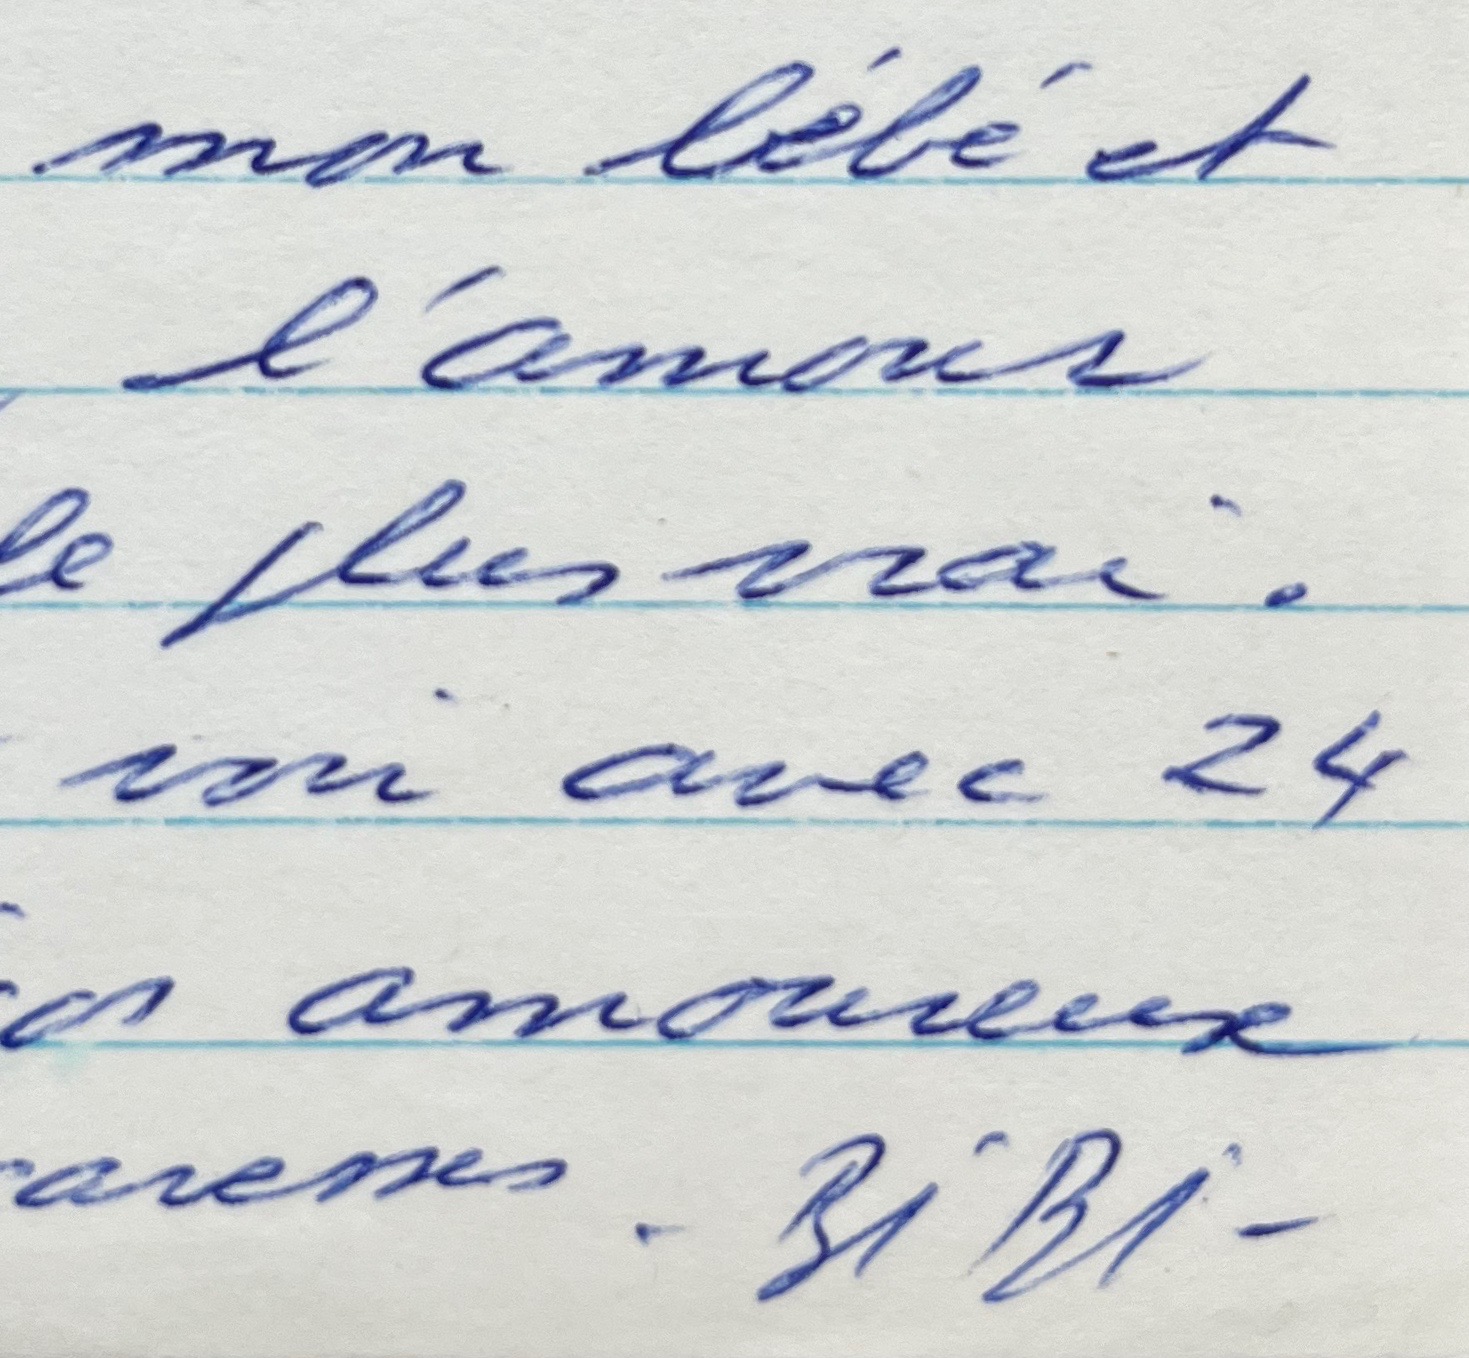 mon bébé et
l'amour
le plus vrai.
voir avec 24
amoureux
caresses - BiBi -